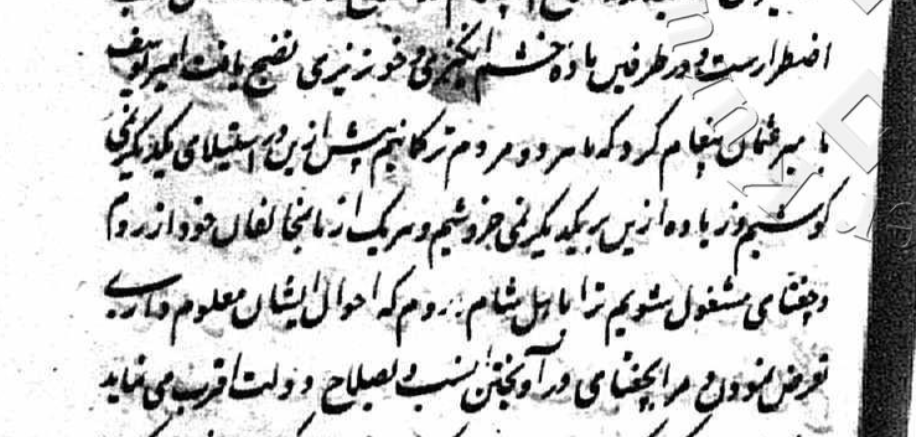 اضطرارست و در طرفین ماده خشم انگیزی و خونریزی نضج یافت امیر یوسف
بامیر عثمان پیغام کرد که ما هر دو مردم ترکانیم پیش ازین در استیلای یکدیگر نمی
کوشیم و زیاده ازین بر یکدیگر نمی خروشیم و هر یک از ما بمخالفان خود از روم
و چغتای مشغول شویم ترا با اهل شام و روم که احوال ایشان معلوم داری
تعرض نمودن و مرا بچغتای در آویختن انسب و بصلاح دولت اقرب می نماید